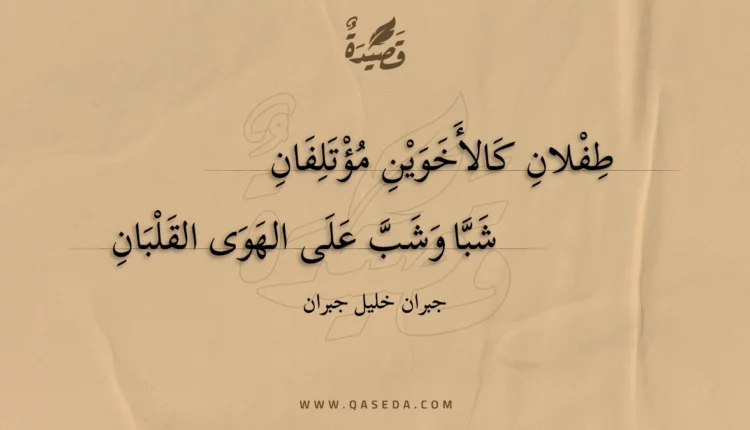 قَصِيْدَةٌ
طِفْلانِ كَالأَخَوَيْنِ مُؤْتَلِفَانِ
شَبَّا وَشَبَّ عَلَى الهَوَى القَلْبَانِ
جبران خليل جبران
WWW.QASEDA.COM